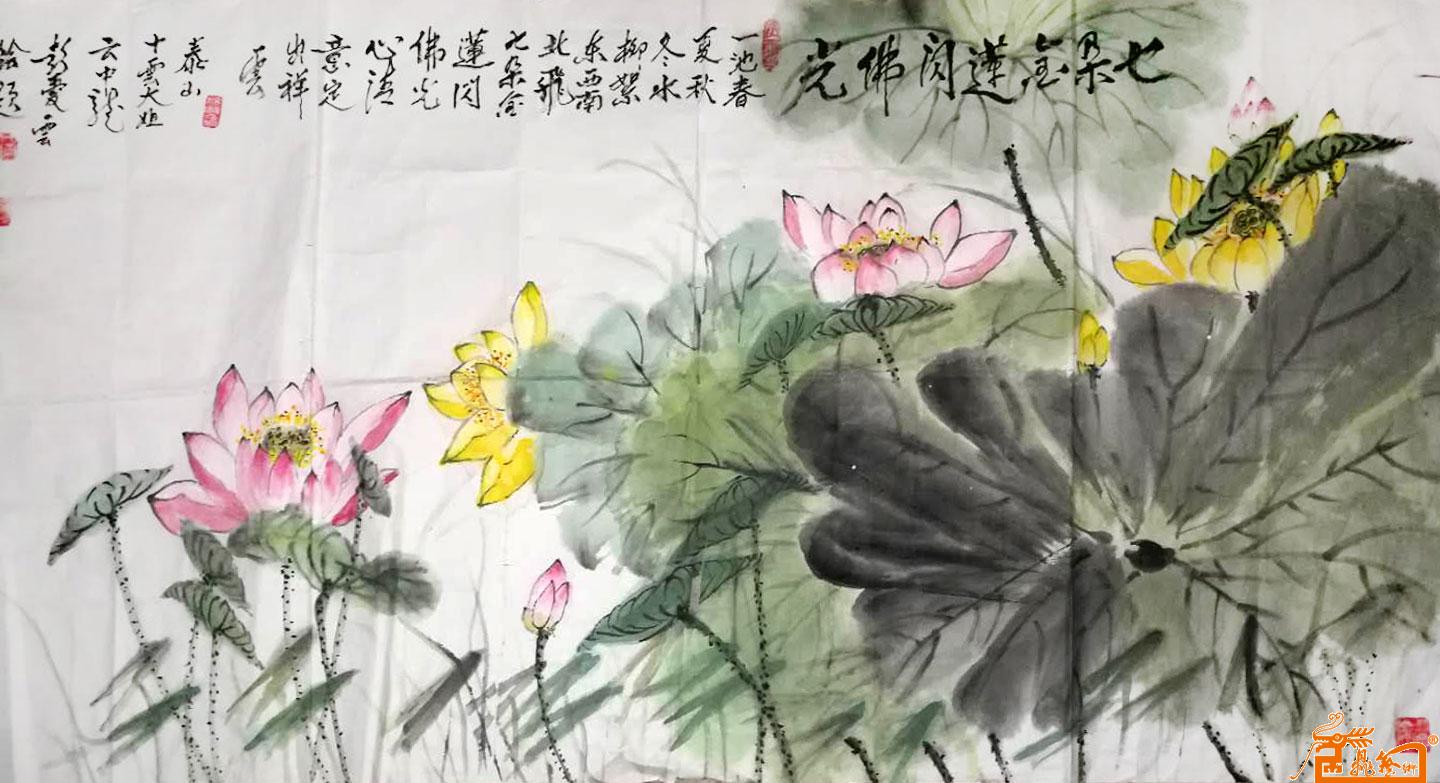 七朵金蓮閃佛光
一池春
夏秋
冬水
柳絮
东西南
北飛
七朵金
蓮闪
佛光
心清
意定
出祥
雲
泰山
十雲大姐
云中龍
彭愛雲
绘题